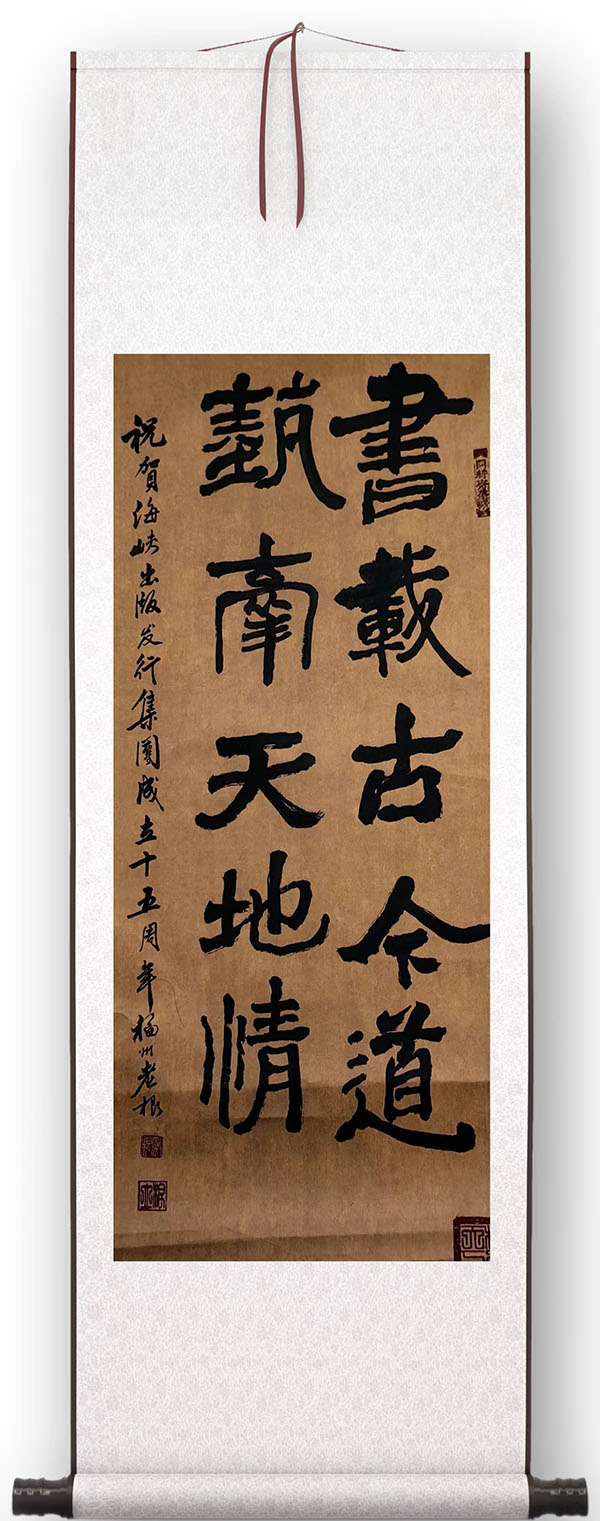 書載古今道
埶牽天地情
祝賀海峡出版发行集團成立十五周年福州老根